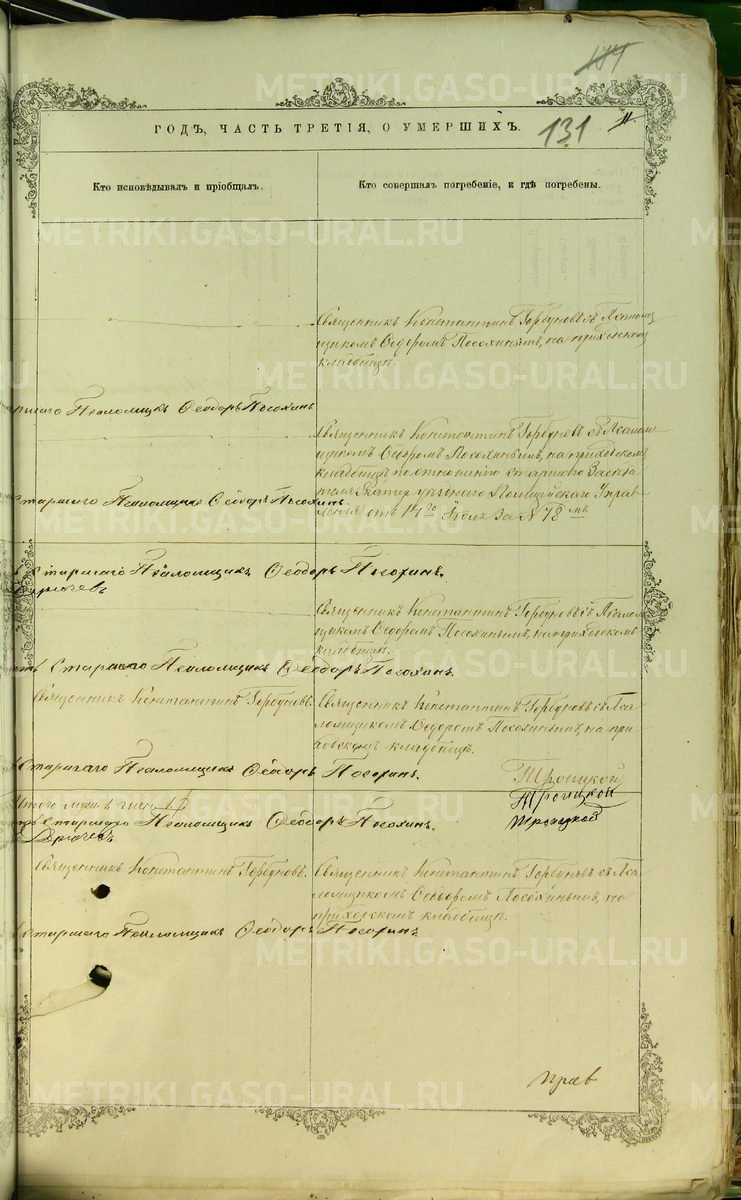 131
ГОДЪ, ЧАСТЬ ТРЕТІЯ, О УМЕРШИХЪ.
Кто исповѣдывалъ и пріобщалъ.
Кто совершалъ погребеніе, и гдѣ погребены.
Священникъ Константинъ Горбуновъ съ Псалом
щикомъ Ѳедоромъ Посохинымъ, на приходскомъ
кладбищѣ.
Псаломщикъ Ѳеодоръ Посохинъ
Священникъ Константинъ Горбуновъ съ Псалом
щикомъ Ѳедоромъ Посохинымъ, на приходскомъ
кладбищѣ по отношенію
Полицейскаго Управ
ленія отъ За № 78
Старшаго Псаломщикъ Ѳеодоръ Посохинъ
Старшаго Псаломщикъ Ѳеодоръ Посохинъ.
Священникъ Константинъ Горбуновъ съ Псалом
щикомъ Ѳедоромъ Посохинымъ, на приходскомъ
кладбищѣ.
Старшаго Псаломщикъ Ѳеодоръ Посохинъ.
Священникъ Константинъ Горбуновъ.
Священникъ Константинъ Горбуновъ съ Пса
ломщикомъ Ѳедоромъ Посохинымъ, на при
ходскомъ кладбищѣ.
Старшаго Псаломщикъ Ѳеодоръ Посохинъ.
Троицкой
Троицкой
Псаломщикъ Ѳеодоръ Посохинъ.
Троицкой
Священникъ Константинъ Горбуновъ.
Священникъ Константинъ Горбуновъ съ Пса
ломщикомъ Ѳедоромъ Посохинымъ, на
приходскомъ кладбищѣ.
Старшаго Псаломщикъ Ѳеодоръ Посохинъ.
METRIKI.GASO-URAL.RU